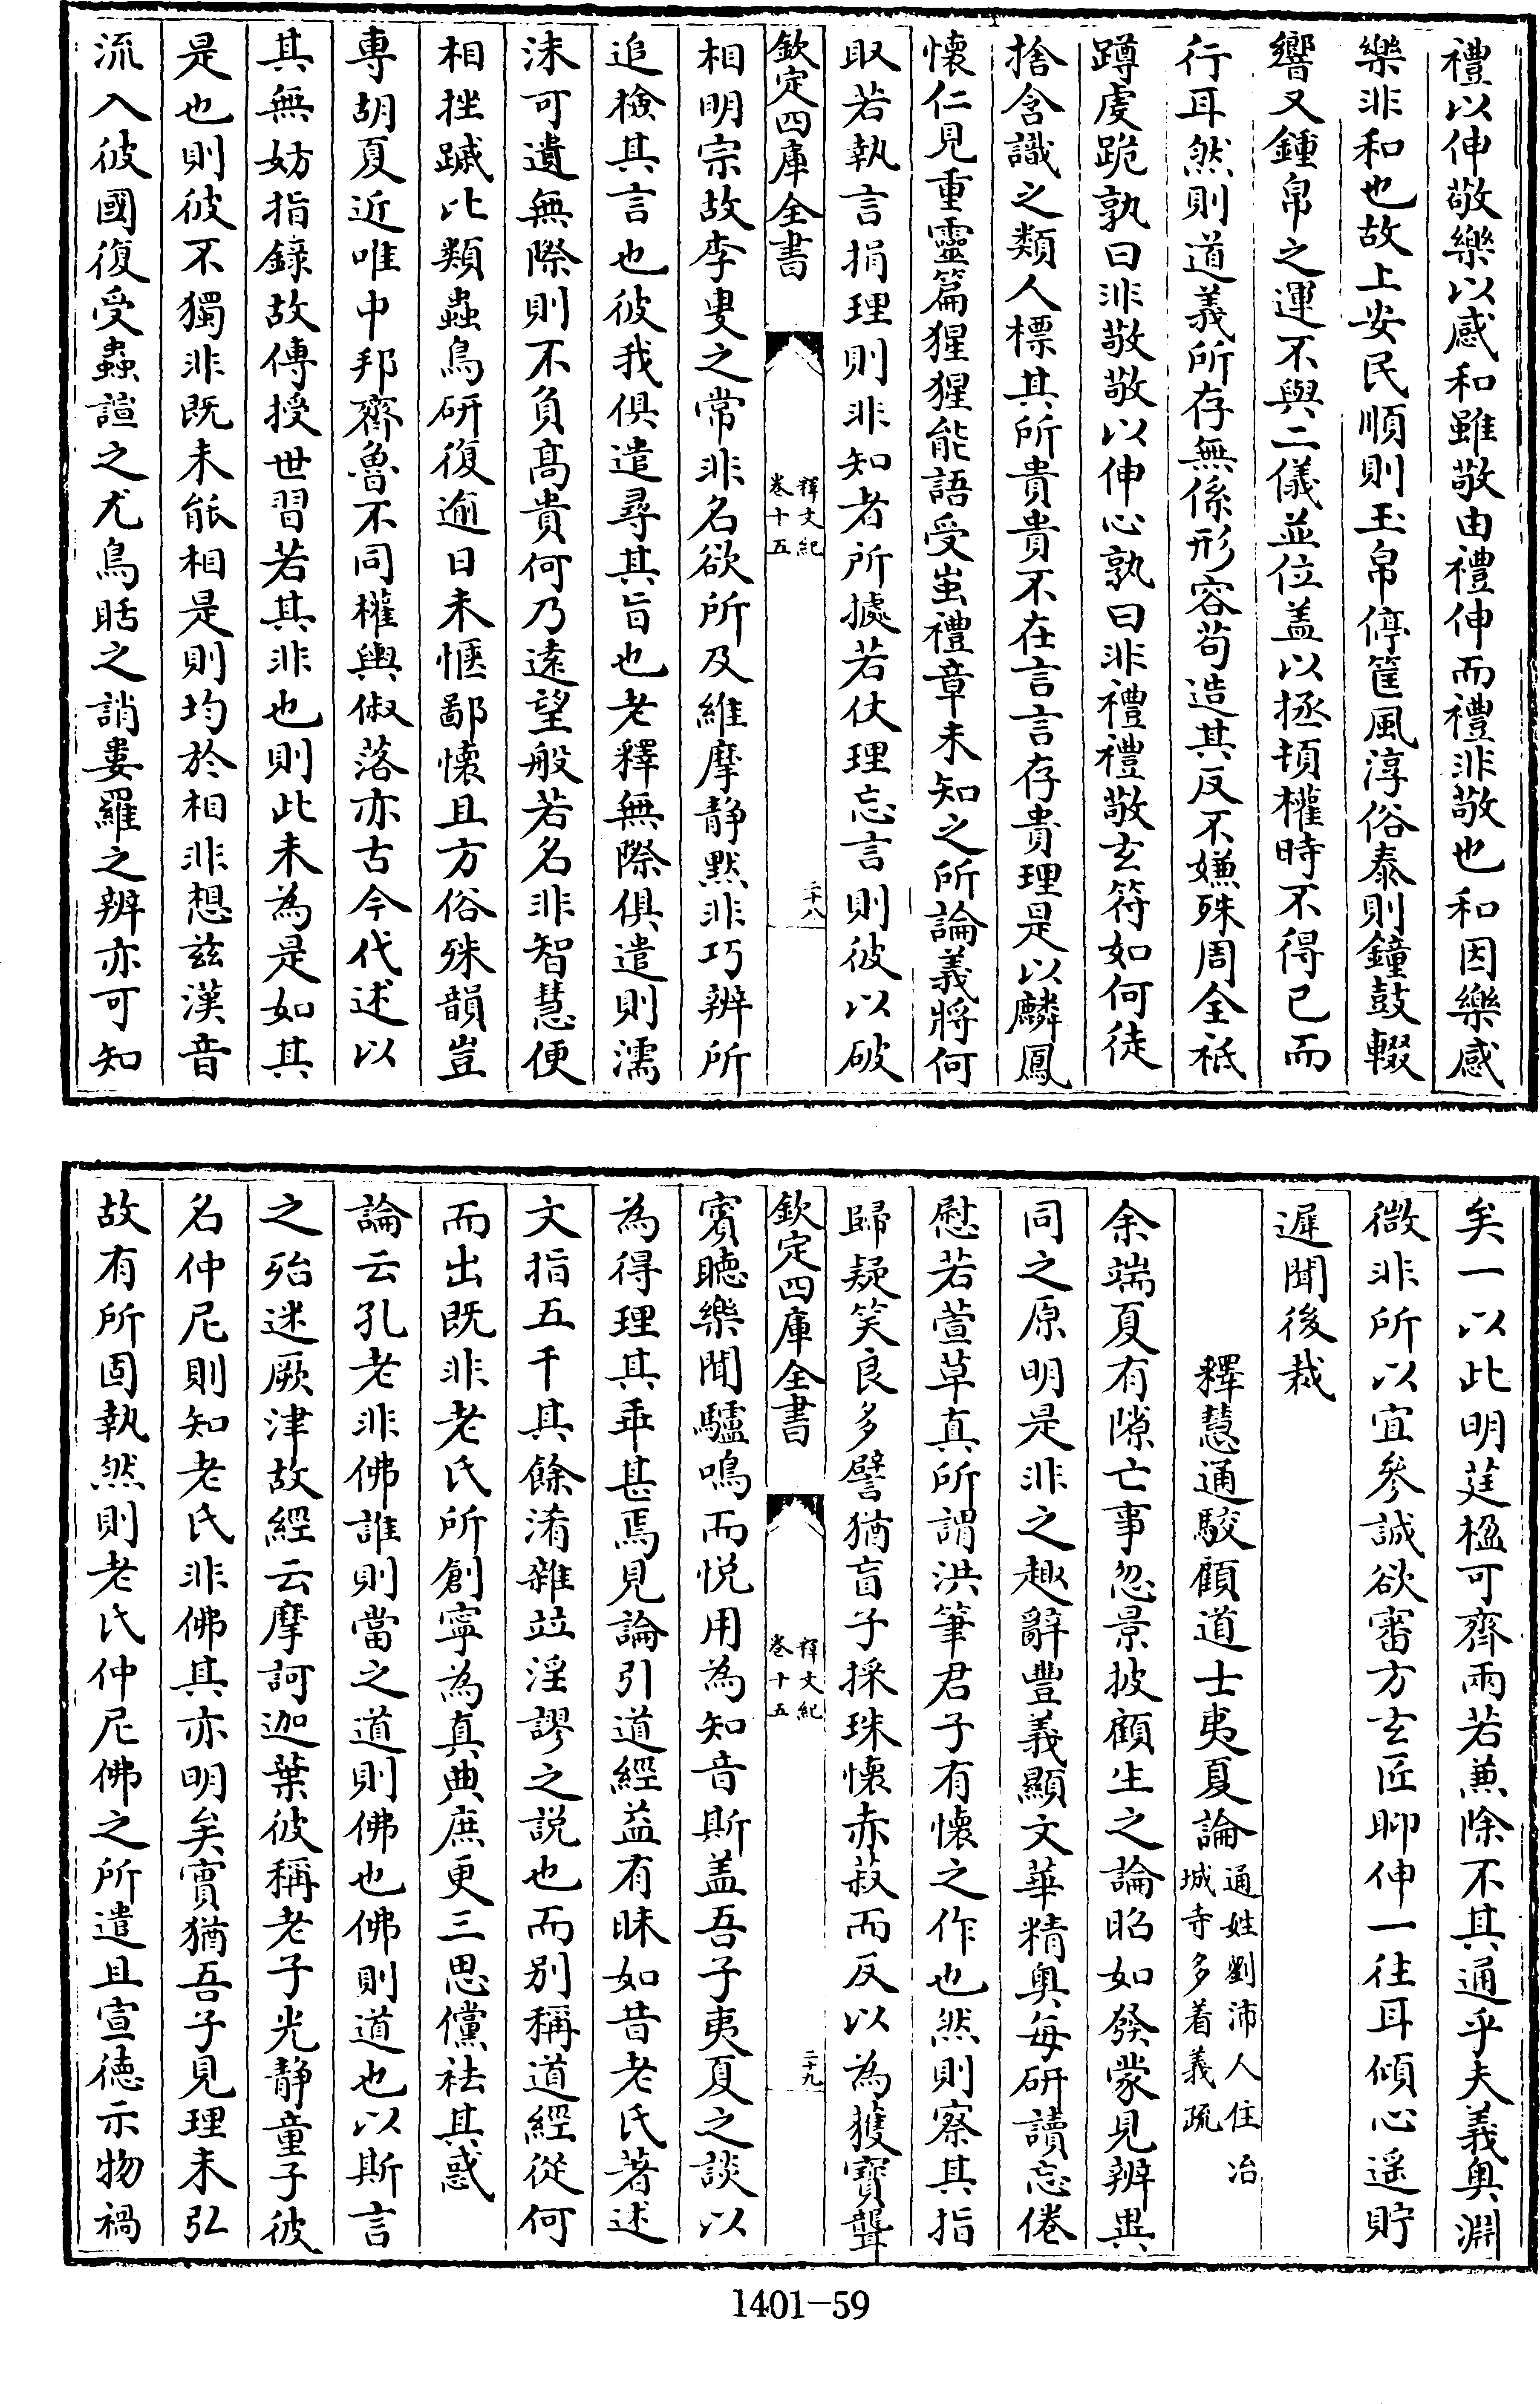 禮以伸敬樂以感和雖敬由禮伸而禮非敬也和因樂感
樂非和也故上安民順則玉帛停筐風淳俗泰則鐘鼓輟
響又鍾帛之運不與二儀並位盖以拯頓權時不得已而
行耳然則道義所存無係形容苟造其反不嫌殊周全祗
蹲虔跪孰曰非敬敬以伸心孰曰非禮禮敬玄符如何徒
捨含識之類人標其所貴貴不在言言存貴理是以麟鳳
懷仁見重靈篇猩猩能語受蚩禮章未知之所論義將何
取若執言捐理則非知者所據若仗理忘言則彼以破
欽定四庫全書
釋文紀
卷十五
二十八
相明宗故李叟之常非名欲所及維摩静黙非巧辨所
追檢其言也彼我俱遣尋其旨也老釋無際俱遣則濡
沫可遺無際則不負髙貴何乃遠望般若名非智慧便
相挫蹴比類蟲鳥研復逾日未愜鄙懷且方俗殊韻豈
專胡夏近唯中邦齊魯不同權輿俶落亦古今代述以
其無妨指錄故傳授世習若其非也則此未為是如其
是也則彼不獨非既未能相是則均於相非想兹漢音
流入彼國復受蟲諠之尤鳥聒之誚婁羅之辨亦可知
矣一以此明莛楹可齊兩若兼除不其通乎夫義奥淵
微非所以宜參誠欲審方玄匠聊伸一往耳傾心遥貯
遲聞後裁
釋慧通駮顧道士夷夏論
通姓劉沛人住冶
城寺多着義疏
余端夏有隙亡事忽景披顧生之論昭如發蒙見辨異
同之原明是非之趣辭豐義顯文華精奥每研讀忘倦
慰若萱草真所謂洪筆君子有懷之作也然則察其指
歸疑笑良多譬猶盲子採珠懷赤菽而反以為獲寶聾
欽定四庫全書
釋文紀
卷十五
二十九
賓聽樂聞驢鳴而悦用為知音斯盖吾子夷夏之談以
為得理其乖甚焉見論引道經益有昧如昔老氏著述
文指五千其餘淆雜竝淫謬之説也而别稱道經從何
而出既非老氏所創寧為真典庶更三思儻袪其惑
論云孔老非佛誰則當之道則佛也佛則道也以斯言
之殆迷厥津故經云摩訶迦葉彼稱老子光靜童子彼
名仲尼則知老氏非佛其亦明矣實猶吾子見理未弘
故有所固執然則老氏仲尼佛之所遣且宣徳示物禍
1401—59